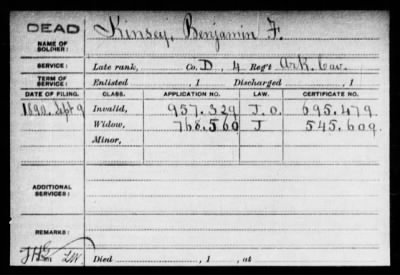 DEAD
NAME OF SOLDIER: Kinsey, Benjamin F.
SERVICE: Late rank, Co. D, 4 Reg't Ark. Cav.
TERM OF SERVICE: Enlisted , 1 Discharged , 1
DATE OF FILING. CLASS. APPLICATION NO. LAW. CERTIFICATE NO.
1890. Sept 9 Invalid, 957.329 J.O. 695.479
Widow, 768.560 J 545.609
Minor,
ADDITIONAL SERVICES:
REMARKS:
Died , 1 , at